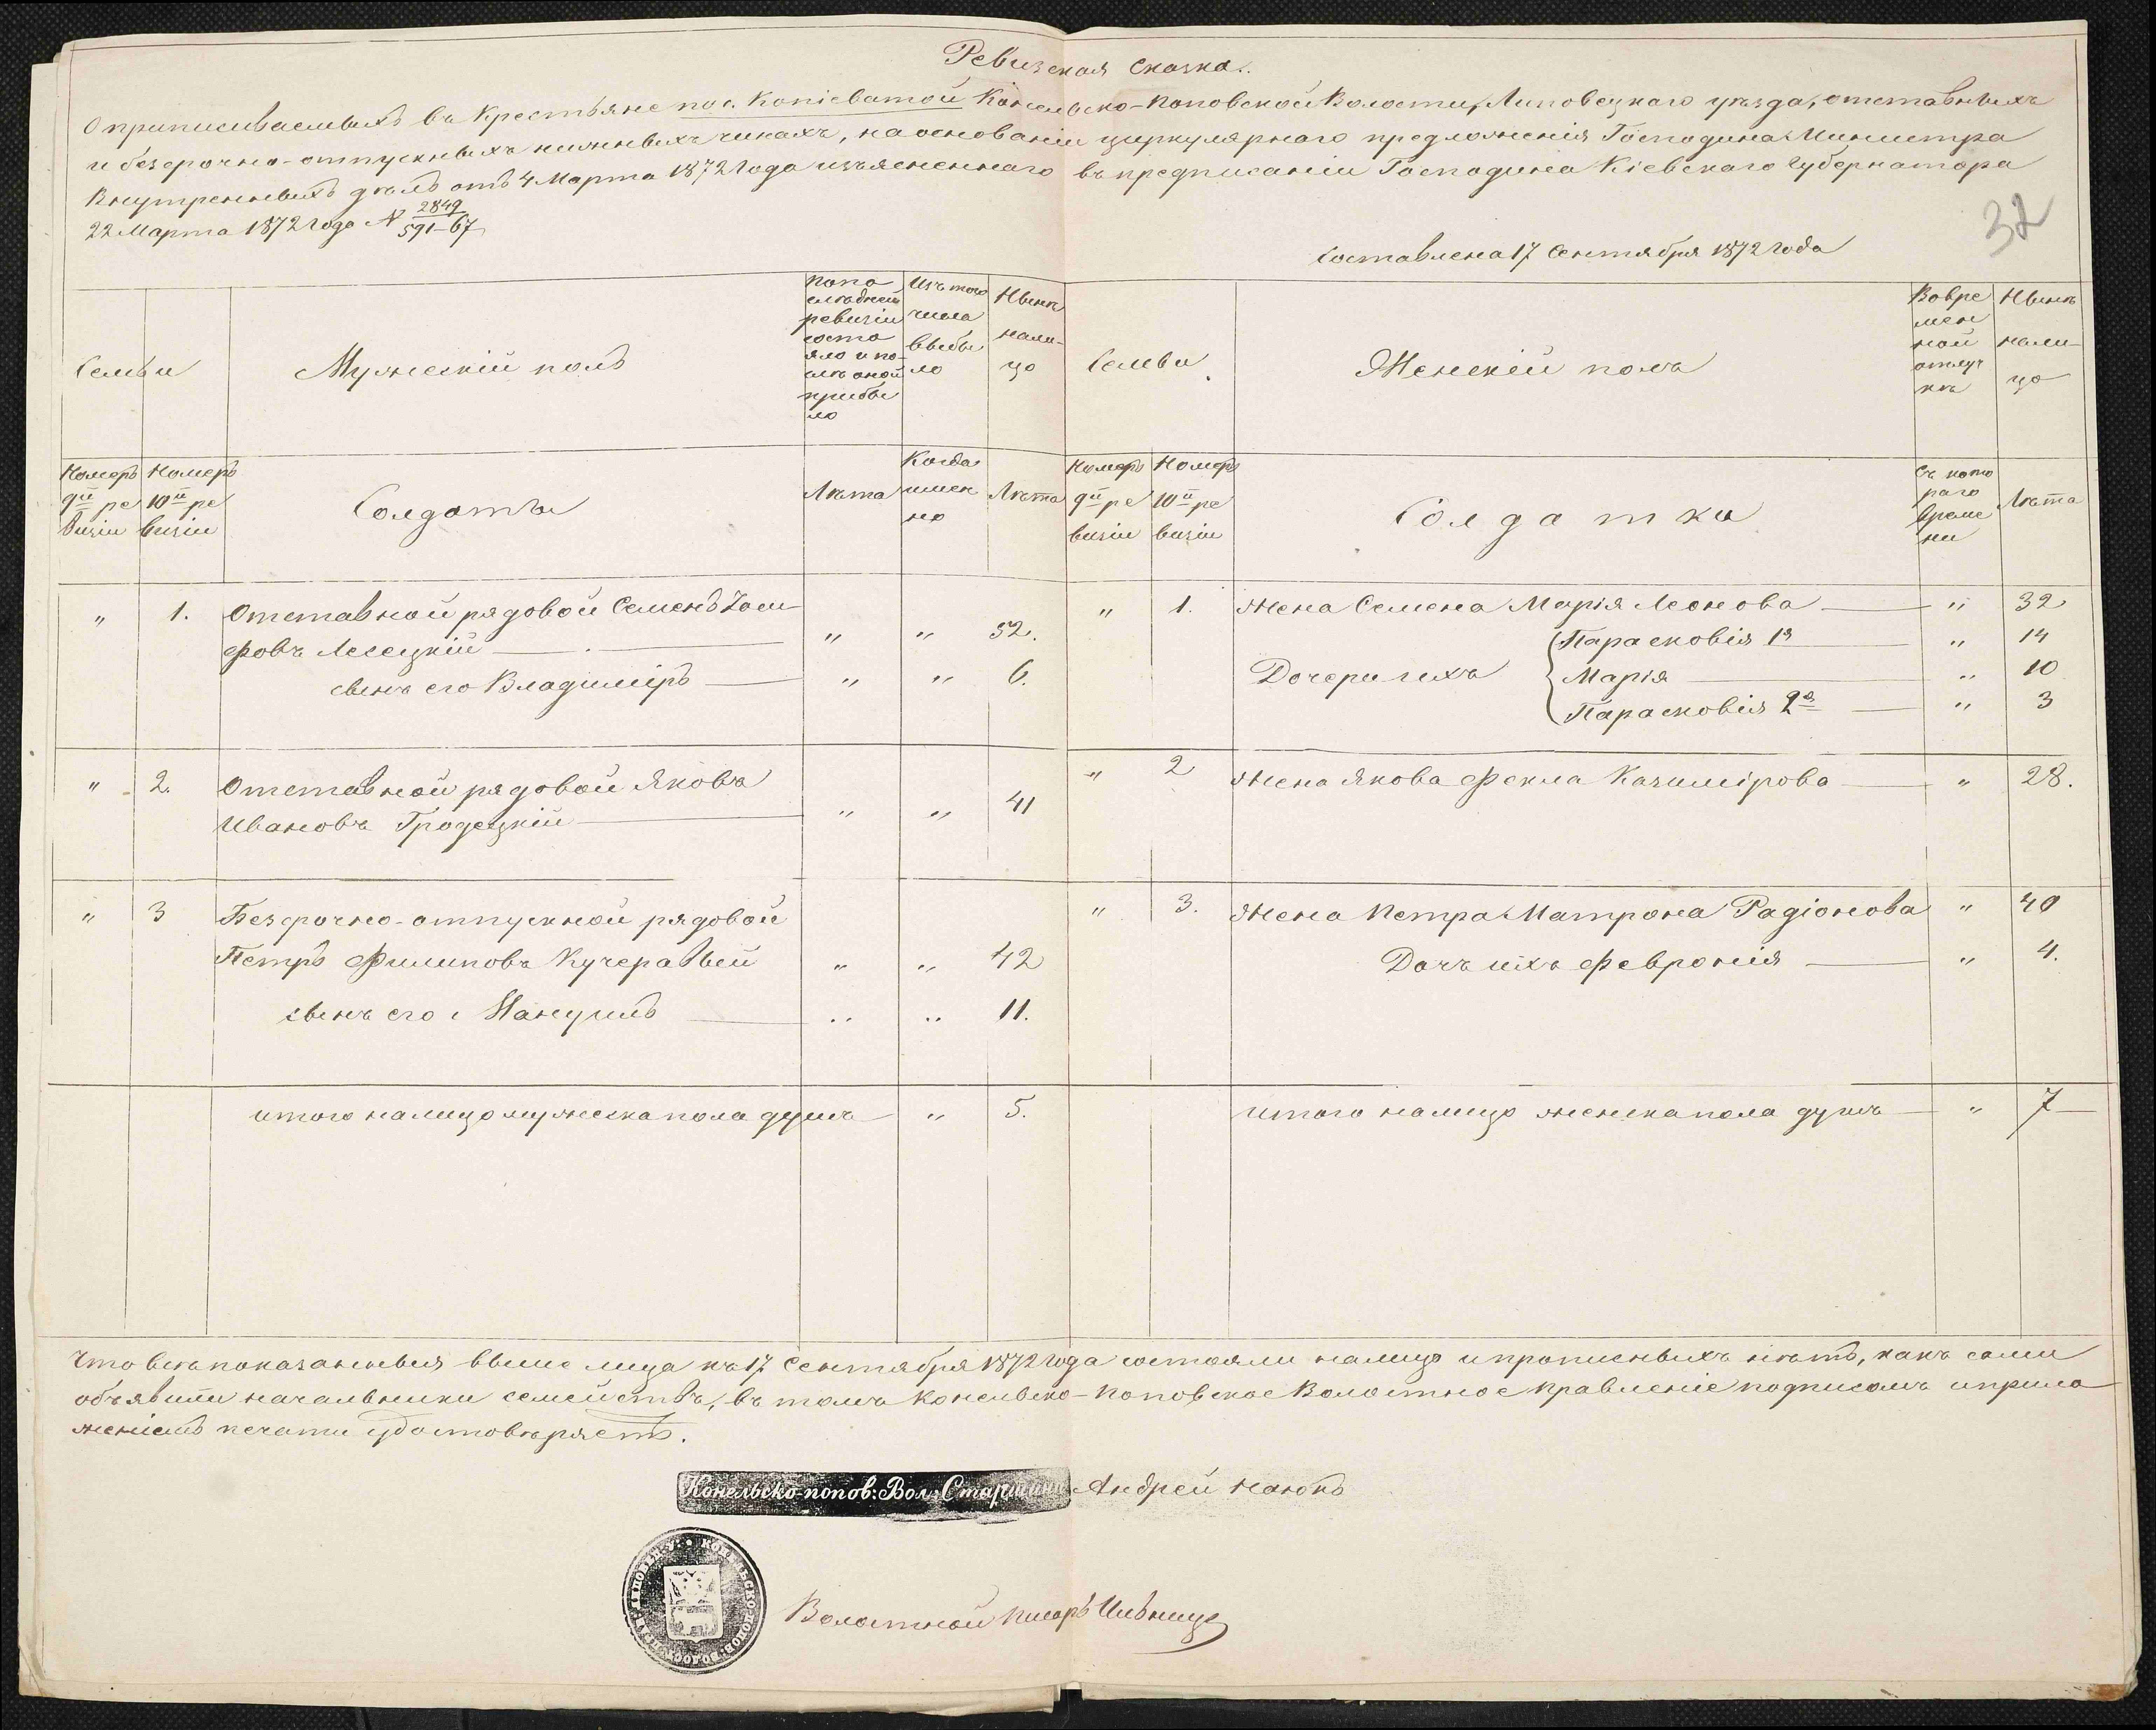 Ревизская Сказка.
О приписываемыхъ въ Крестьяне по с. Копіеватой Конельско-Поповской Волости, Липовецкаго уѣзда, отставныхъ
и безсрочно-отпускныхъ нижныхъ чинахъ, на основаніи циркулярнаго предложенія Господина Министра
Внутренныхъ дѣлъ отъ 4 Марта 1872 года изъясненнаго въ предписаніи Господина Кіевскаго Губернатора
22 Марта 1872 года № 2849/591-67
32
Составлена 17 Сентября 1872 года
Семьи
Мужескій полъ
По по
слѣдней
ревизіи
состо
яло и по-
слѣ оной
прибы
ло
Изъ того
числа
выбы
ло
Нынѣ
нали-
цо
Семьи
Женскій полъ
Во вре
мен
ной
отлуч
кѣ
Нынѣ
нали-
цо
Номеръ
9й ре
визіи
Номеръ
10й ре
визіи
Солдаты
Лѣта
Когда
имен
но
Лѣта
Номеръ
9й ре
визіи
Номеръ
10й ре
визіи
Солдатки
Съ кото
раго
време
ни
Лѣта
" 1. Отставной рядовой Семенъ Іоси-
фовъ Лесецкій " " 52.
сынъ его Владиміръ " " 6.
" 1. жена Семена Марія Леонова " 32
Дочери ихъ Парасковія 1я " 14
Марія " 10
Парасковія 2я " 3
" 2. Отставной рядовой Яковъ
Ивановъ Гродецкій " " 41
" 2 жена Якова Фекла Казимірова " 28.
" 3 Безсрочно-отпускной рядовой
Петръ Филиповъ Кучеравый " " 42
сынъ его Мануилъ " " 11.
" 3. жена Петра Матрона Радіонова " 40
Дочь ихъ Февронія " 4.
итого налицо мужеска пола душъ " 5.
итого налицо женска пола душъ " 7
Что всѣ показанныя выше лица къ 17 Сентября 1872 года состояли налицо и прописныхъ нѣтъ, какъ сами
объявили начальники семействъ, въ томъ Конельско-Поповское Волостное Правленіе подписомъ и прило
женіемъ печати удостовѣряетъ.
Конельско-попов: Вол: Старшина Андрей
КОНЕЛЬСКО-ПОПОВ:
Волостной Писарь